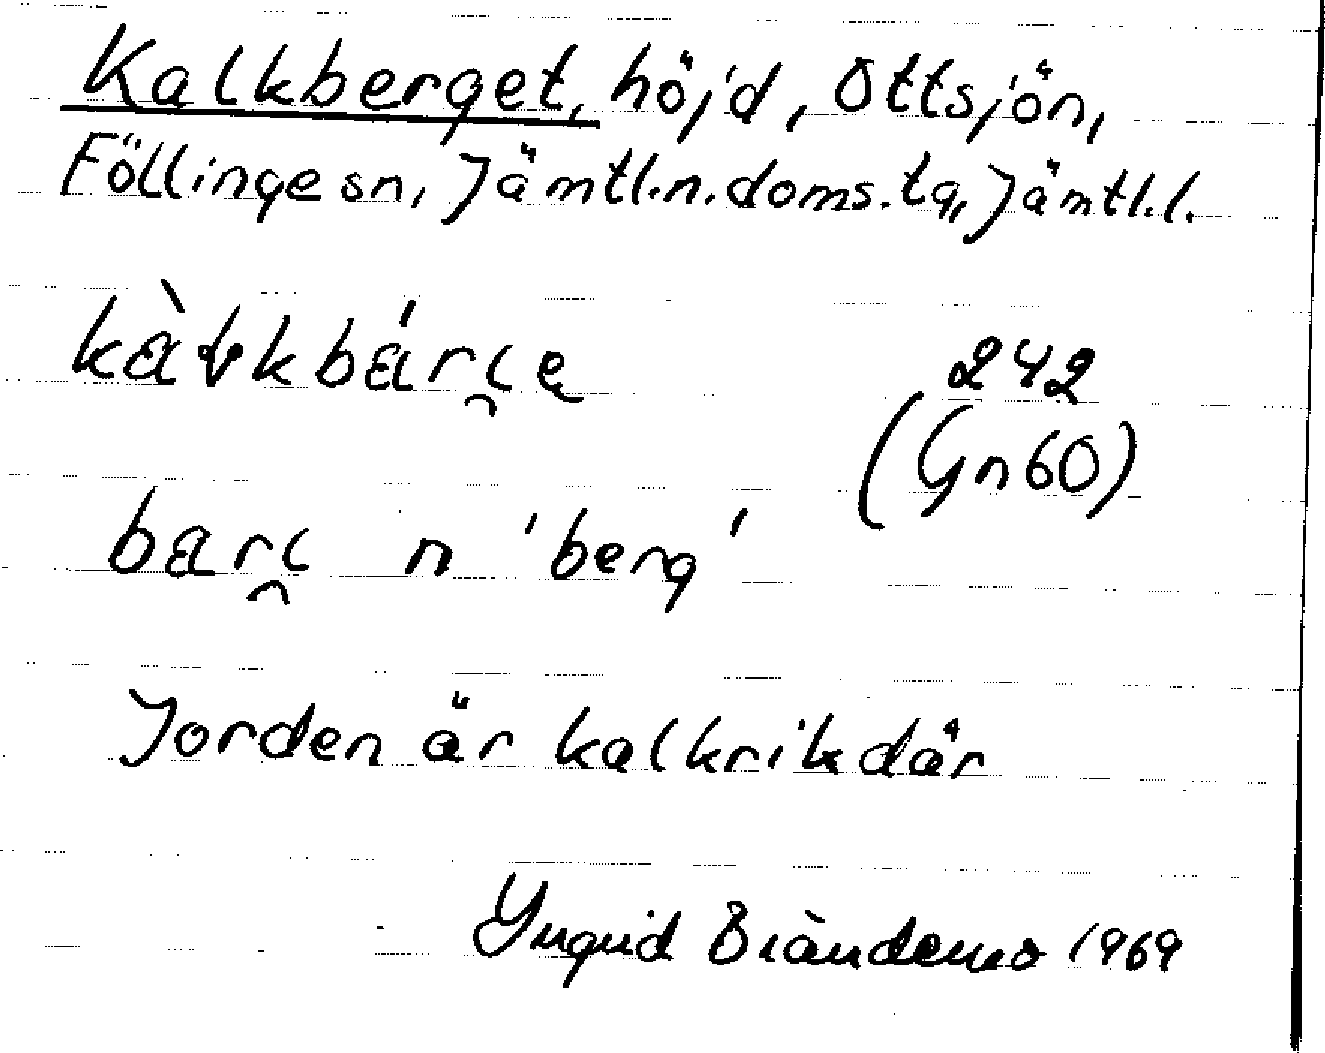 Kalkberget, höjd, Ottsjön,
Föllinge sn, Jämtl.n.doms.tg, Jämtl.l.
242
(Gn60)
n 'berg'
Jorden är kalkrik där
Ingrid Brändemo 1969